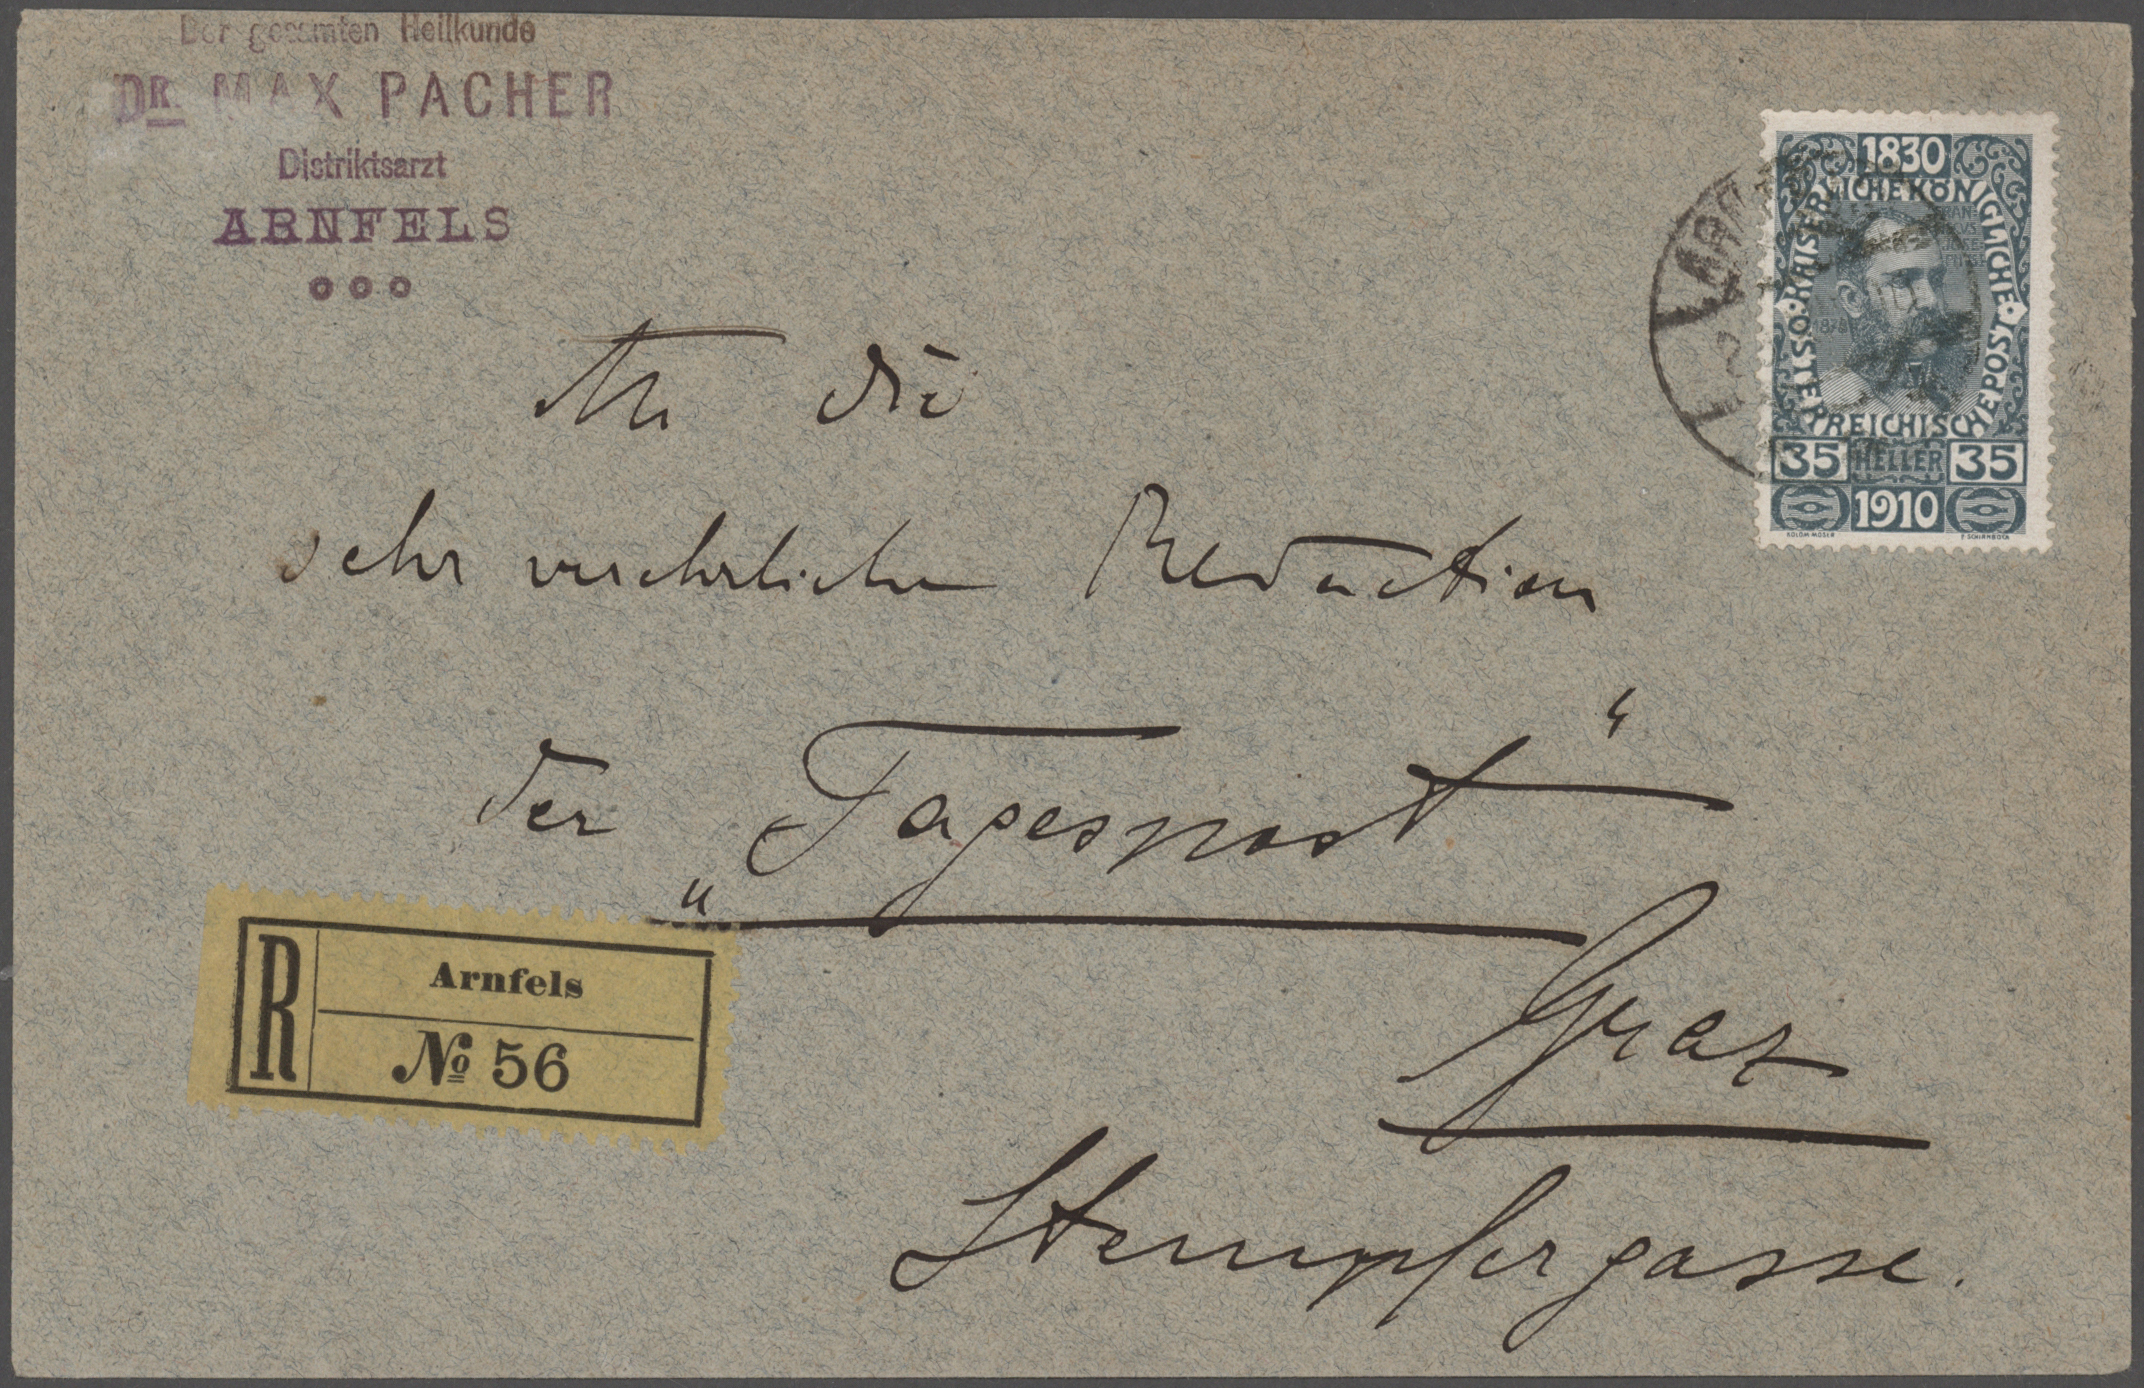 Der gesamten Heilkunde
DR. MAX PACHER
Distriktsarzt
ARNFELS
1830
KAISERLICHE KÖNIGLICHE ÖSTERREICHISCHE POST
35 HELLER 35
1910
KOLOM. MOSER F. SCHIRNBÖCK
An die
sehr verehrliche Redaction
der „Tagespost“
Graz
Stempfergasse.
R
Arnfels
№ 56